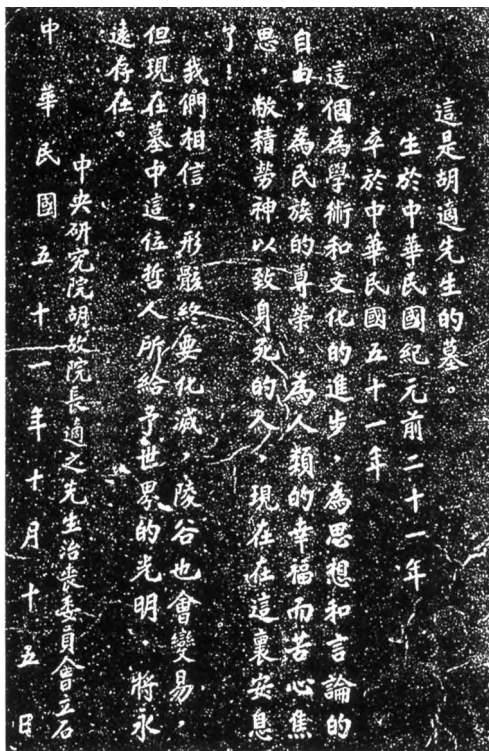 這是胡適先生的墓。
生於中華民國紀元前二十一年
卒於中華民國五十一年
這個為學術和文化的進步,為思想和言論的
自由,為民族的尊榮,為人類的幸福而苦心焦
思,敝精勞神以致身死的人,現在在這裏安息
了!
我們相信,形骸終要化滅,陵谷也會變易,
但現在墓中這位哲人所給予世界的光明,將永
遠存在。
中央研究院胡故院長適之先生治喪委員會立石
中華民國五十一年十月十五日